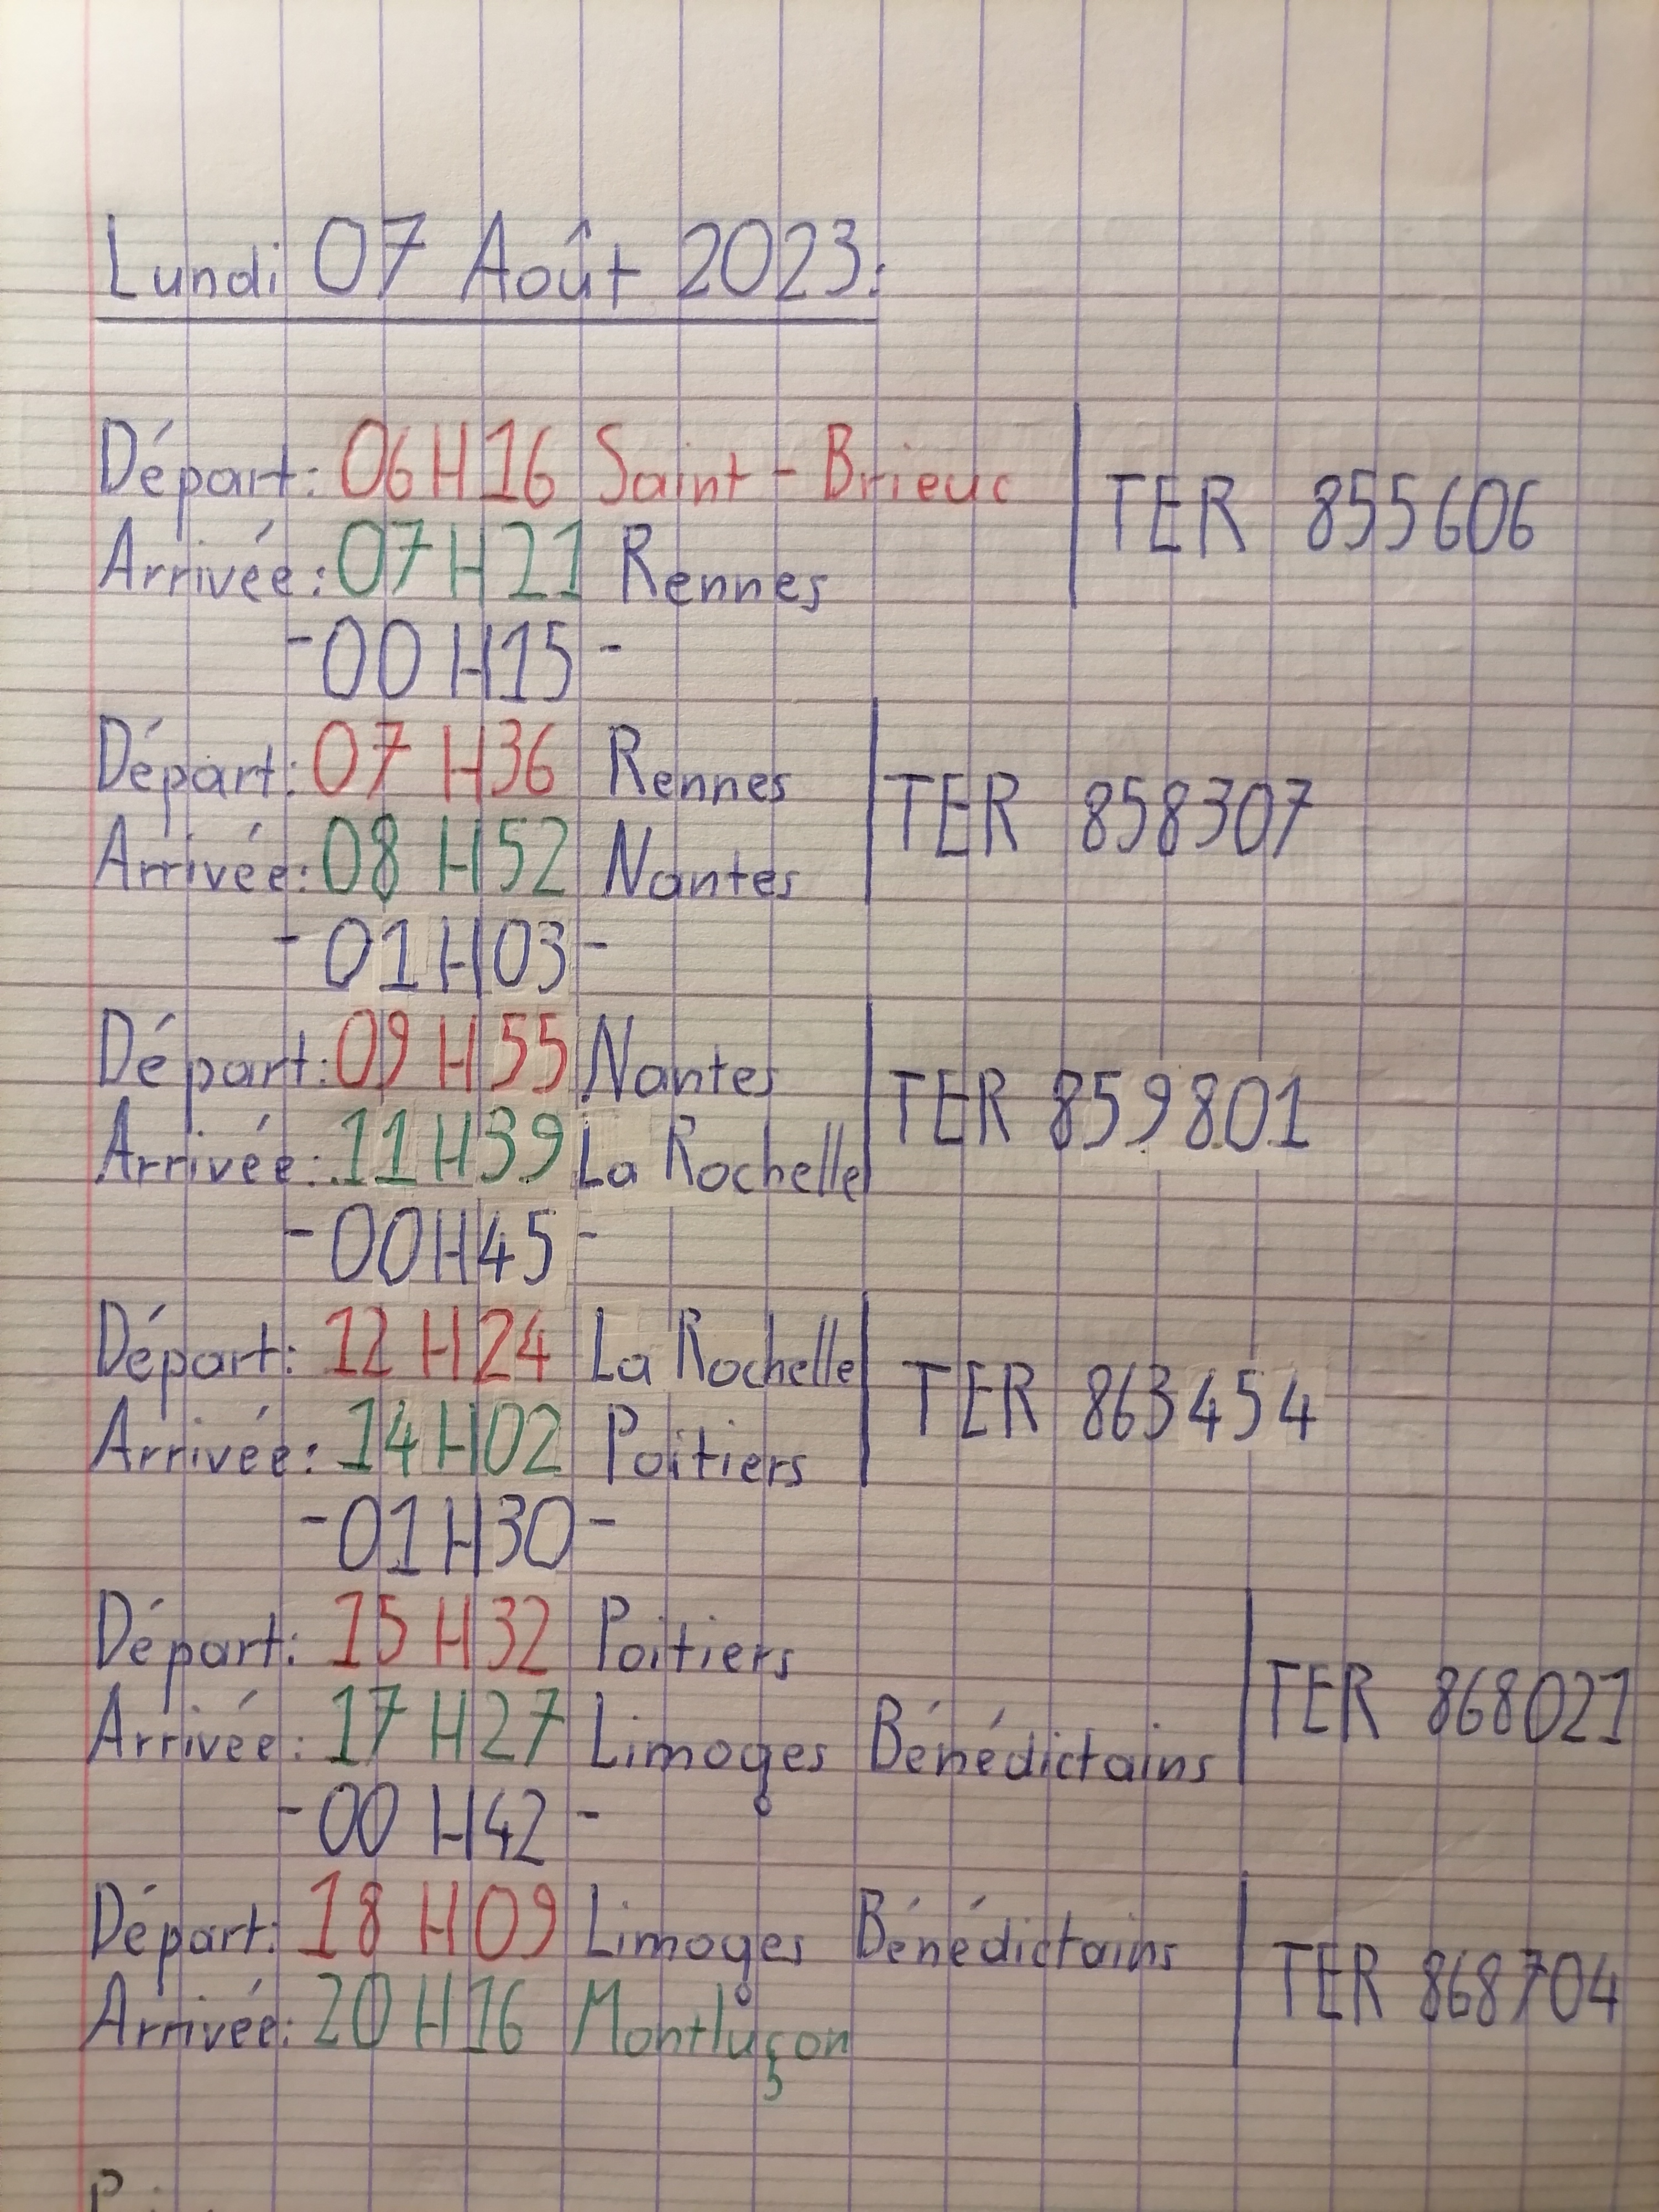 Lundi 07 Août 2023:
Départ: 06H16 Saint-Brieuc
Arrivée: 07H21 Rennes
TER 855606
-00H15-
Départ: 07H36 Rennes
Arrivée: 08H52 Nantes
TER 858307
-01H03-
Départ: 09H55 Nantes
Arrivée: 11H39 La Rochelle
TER 859801
-00H45-
Départ: 12H24 La Rochelle
Arrivée: 14H02 Poitiers
TER 863454
-01H30-
Départ: 15H32 Poitiers
Arrivée: 17H27 Limoges Bénédictains
TER 868021
-00H42-
Départ: 18H09 Limoges Bénédictains
Arrivée: 20H16 Montluçon
TER 868704